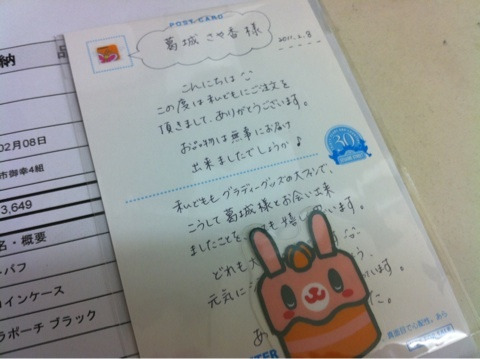 納
品
02月08日
市御幸4組
3,649
名・概要
パフ
コインケース
ラポーチ ブラック
POST CARD
葛城 さや香 様
2011.2.8
こんにちは
この度は私どもにご注文を
頂きまして、ありがとうございます。
お品物は無事にお届け
出来ましたでしょうか♪
30
私どもも グラディーグッズの大ファンで、
こうして葛城様とお会い出来
ましたことを
嬉し
います。
どれも
元気に
います。
た。
あ
真面目で心配性。あら